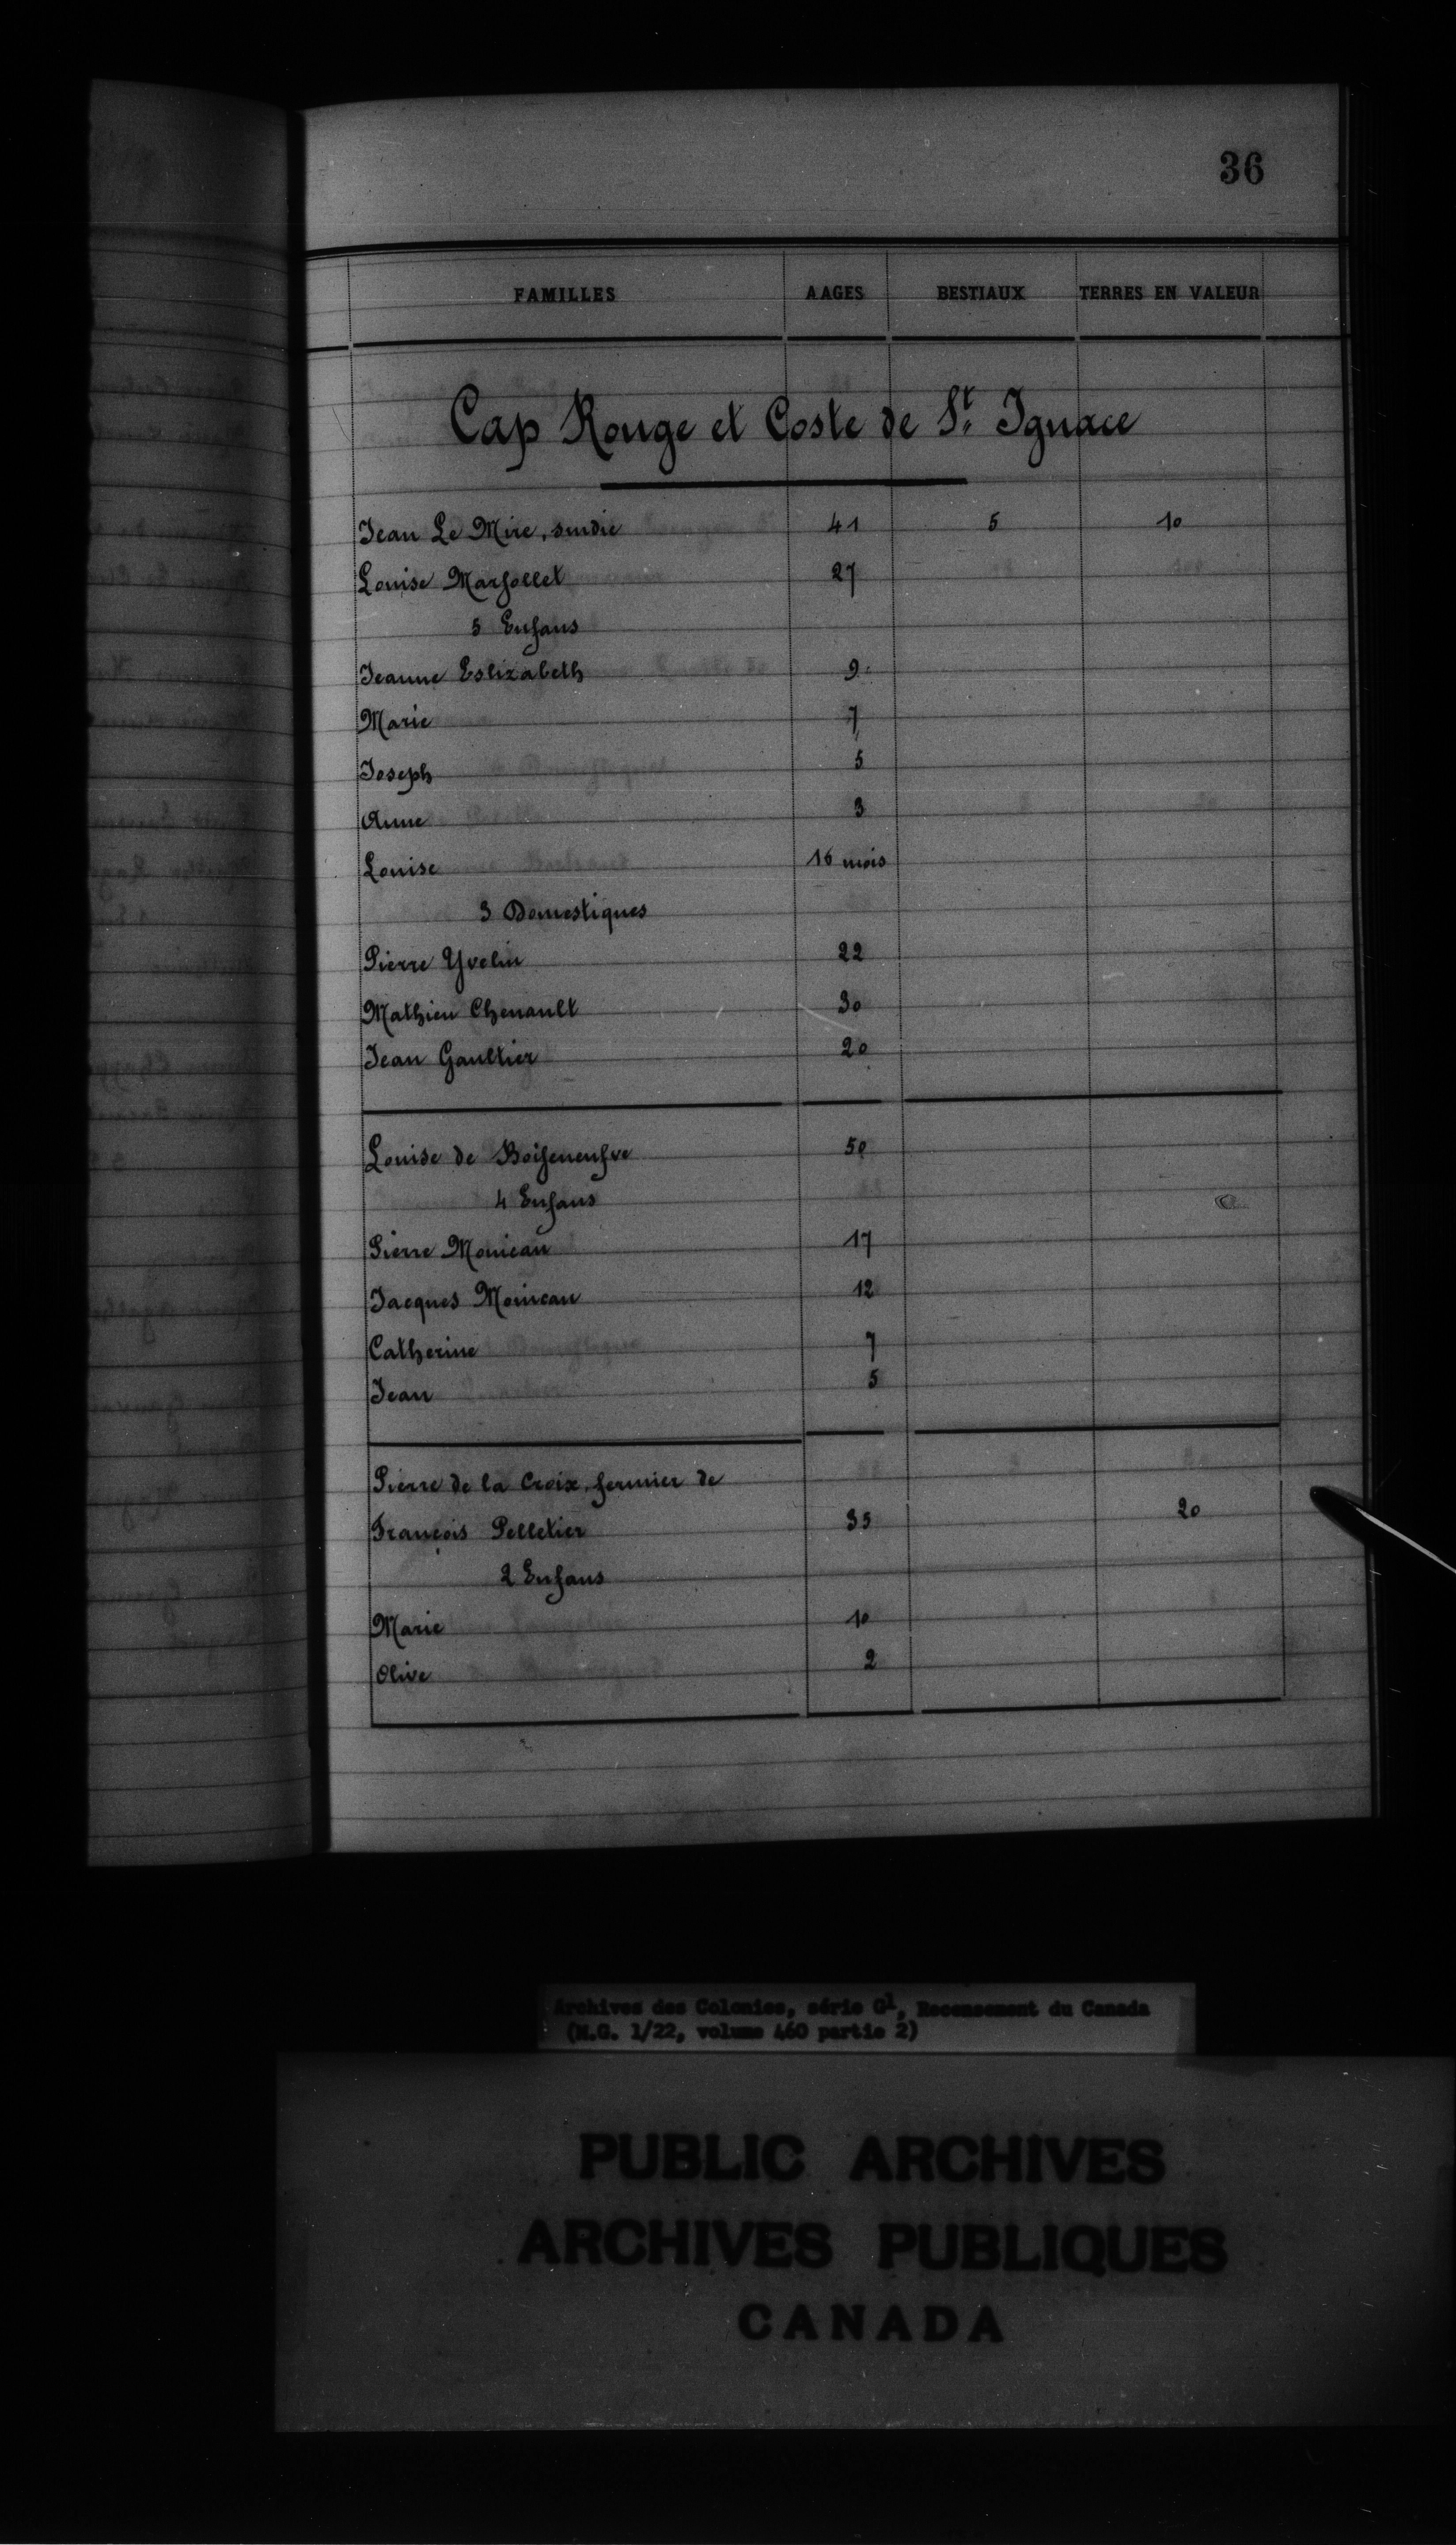 36
FAMILLES AAGES BESTIAUX TERRES EN VALEUR
Cap Rouge et Coste de St. Ignace
Jean Le Mire, sindic 41 5 10
Louise Marsollet 27
5 Enfans
Jeanne Eslizabeth 9
Marie 7
Joseph 5
Anne 3
Louise 16 mois
3 Domestiques
Pierre Yvelin 22
Mathieu Chenault 30
Jean Gaultier 20
Louise de Boiseneufve 50
4 Enfans
Pierre Moineau 17
Jacques Moineau 12
Catherine 7
Jean 5
Pierre de la Croix, fermier de
François Pelletier 35 20
2 Enfans
Marie 10
Olive 2
Archives des Colonies, série G1, Recensement du Canada
(M.G. 1/22, volume 460 partie 2)
PUBLIC ARCHIVES
ARCHIVES PUBLIQUES
CANADA